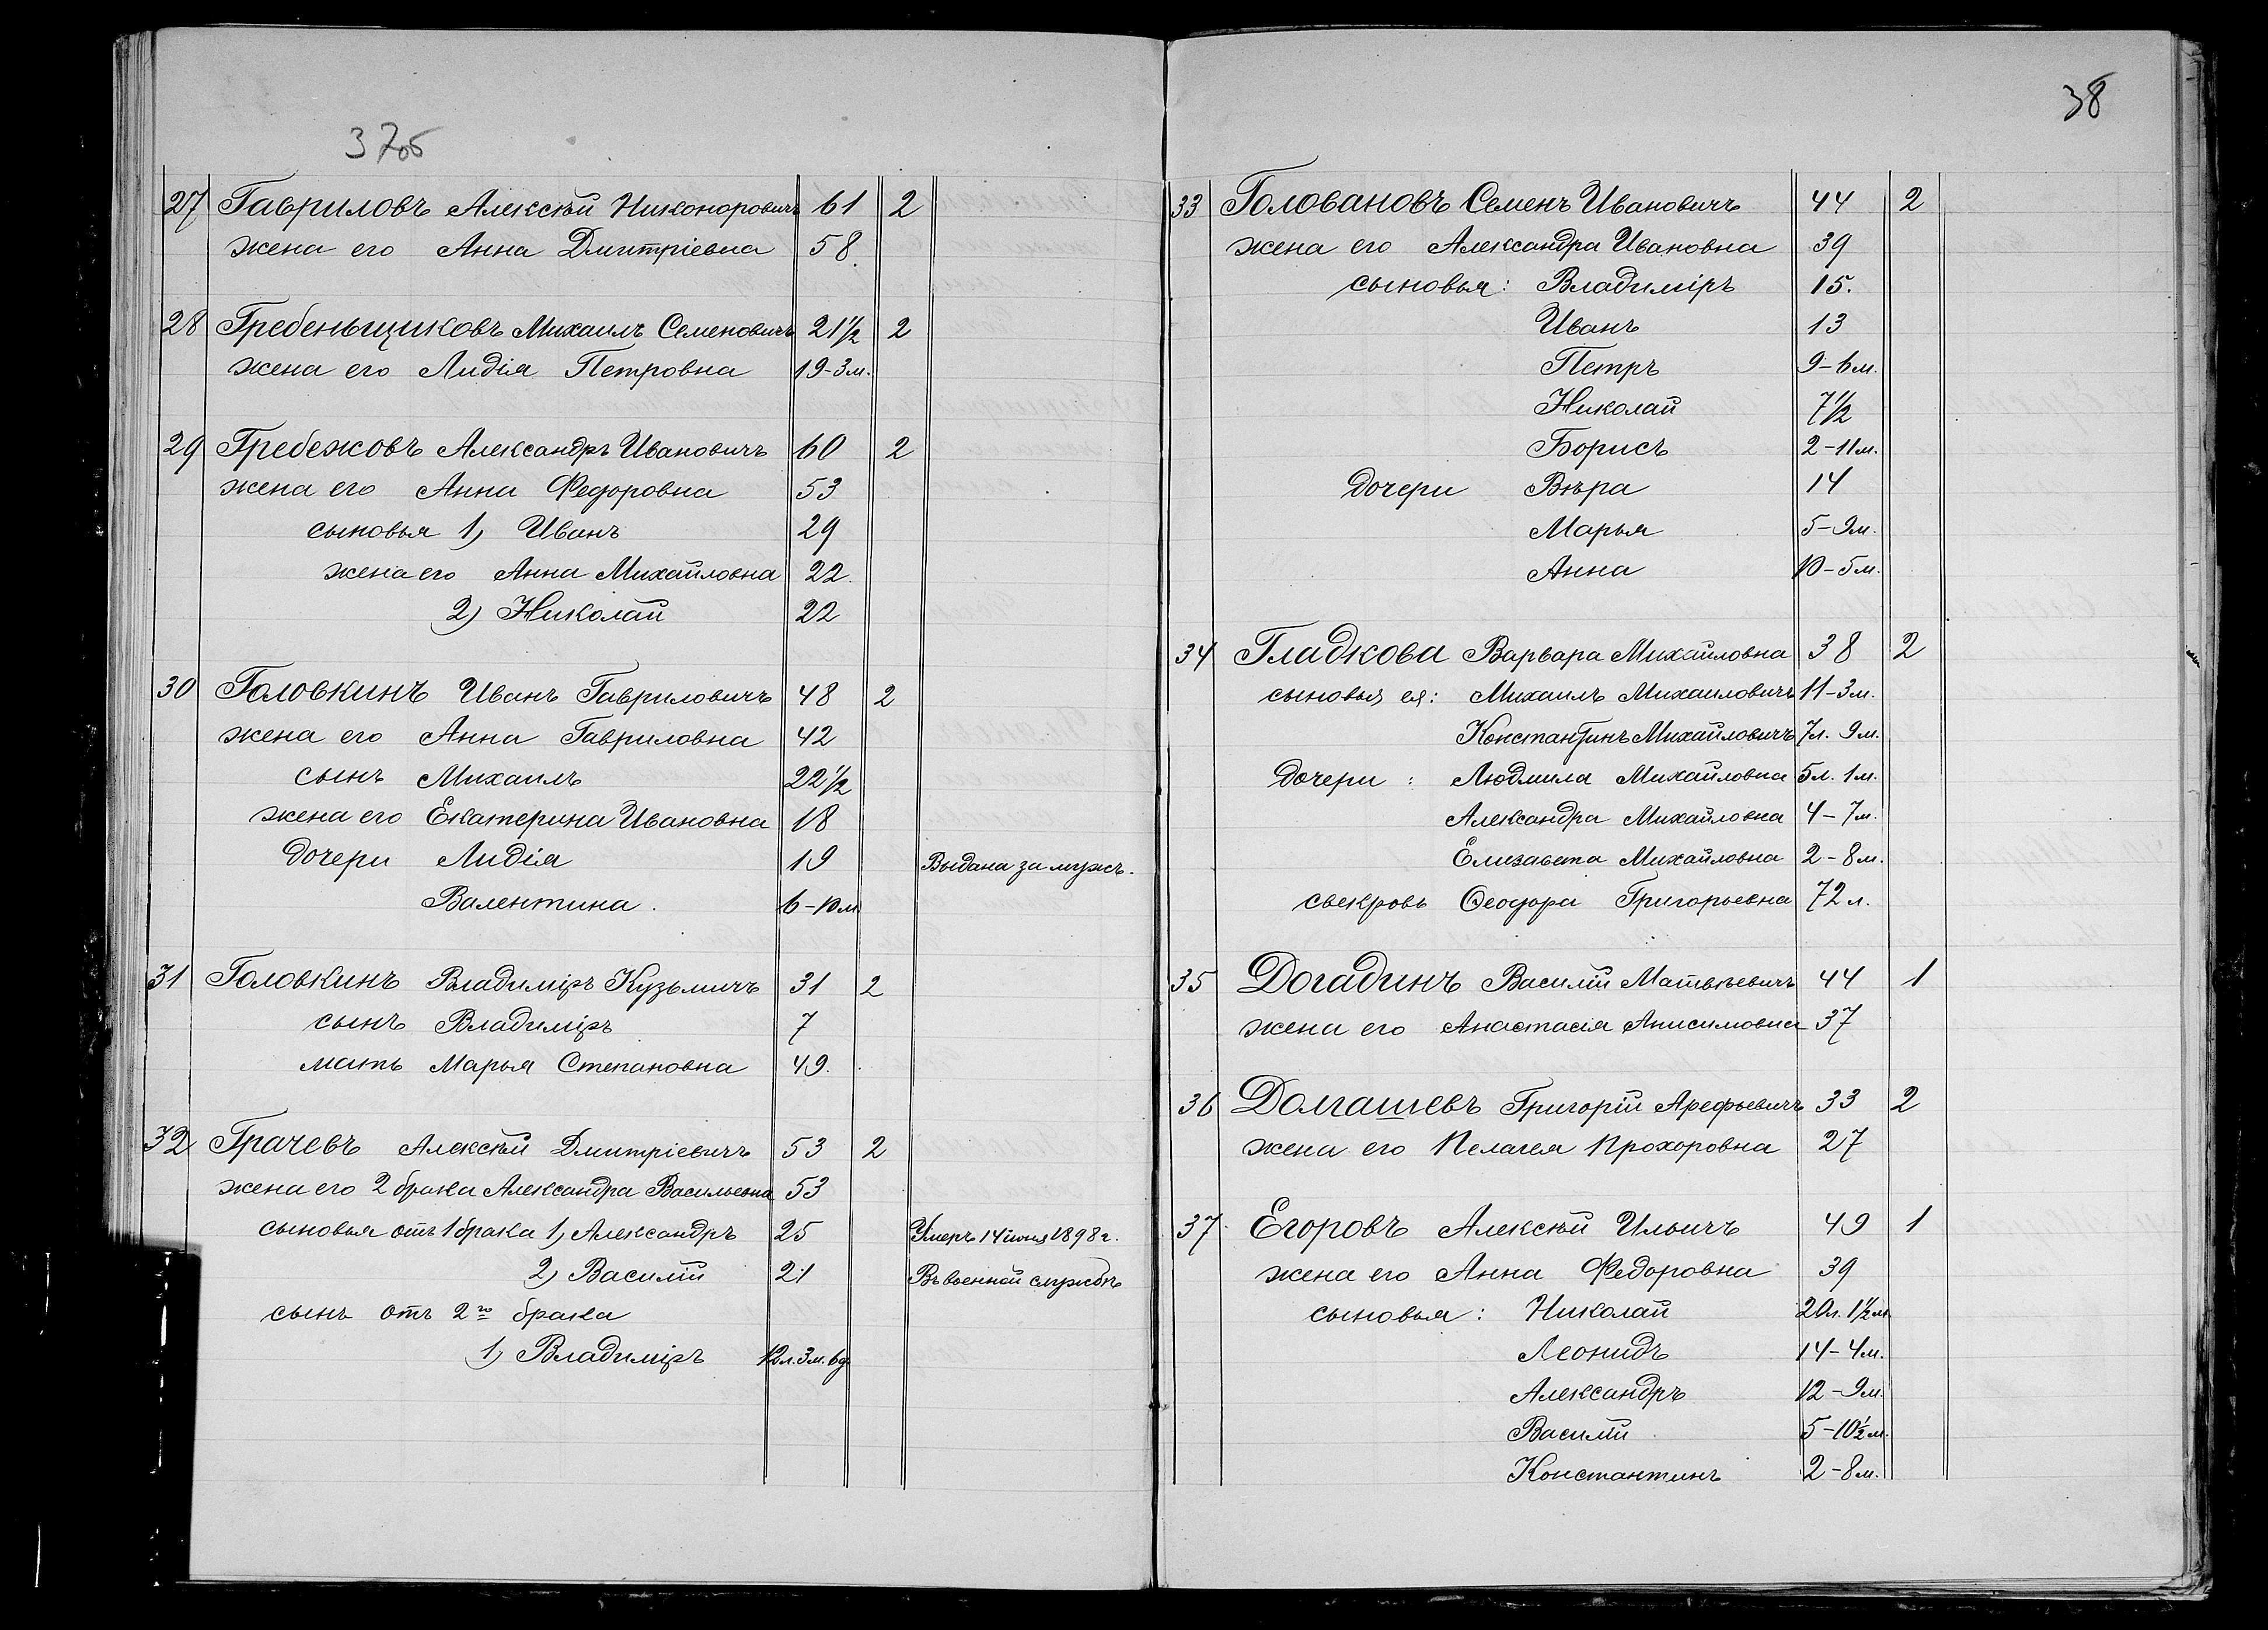 37об
27 Гавриловъ Алексѣй Никоноровичъ 61 2
жена его Анна Дмитріевна 58.
28 Гребеньщиковъ Михаилъ Семеновичъ 21 1/2 2
жена его Лидія Петровна 19-3м.
29 Гребежовъ Александръ Ивановичъ 60 2
жена его Анна Федоровна 53
сыновья 1) Иванъ 29
жена его Анна Михайловна 22.
2) Николай 22
30 Головкинъ Иванъ Гавриловичъ 48 2
жена его Анна Гавриловна 42
сынъ Михаилъ 22 1/2
жена его Екатерина Ивановна 18
дочери Лидія 19 Выдана замужъ.
Валентина. 6-10м
31 Головкинъ Владиміръ Кузьмичъ 31 2
сынъ Владиміръ 7
мать Марья Степановна 49.
32 Грачевъ Алексѣй Дмитріевичъ 53 2
жена его 2 брака Александра Васильевна 53
сыновья отъ 1 брака 1) Александръ 25 Умеръ 14 іюня 1898 г.
2) Василій 21 Въ военной службѣ
сынъ отъ 2го брака
1) Владиміръ 12л.3м.6д.
38
33 Головановъ Семенъ Ивановичъ 44 2
жена его Александра Ивановна 39
сыновья: Владиміръ 15.
Иванъ 13
Петръ 9-6м.
Николай 7 1/2
Борисъ 2-11м.
дочери Вѣра 14
Марья 5-9м.
Анна 10-5м.
34 Гладкова Варвара Михайловна 38 2
сыновья ея: Михаилъ Михаиловичъ 11-3м.
Константинъ Михайловичъ 7л. 9м.
дочери: Людмила Михайловна 5л. 1м.
Александра Михайловна 4-7м.
Елизавета Михайловна 2-8м.
свекровь Ѳеодора Григорьевна 72 л.
35 Догадинъ Василій Матвѣевичъ 44 1
жена его Анастасія Анисимовна 37
36 Долгашевъ Григорій Арефьевичъ 33 2
жена его Пелагея Прохоровна 27
37. Егоровъ Алексѣй Ильичъ 49 1
жена его Анна Федоровна 39
сыновья: Николай 20л. 1 1/2м.
Леонидъ 14-4м.
Александръ 12-9м.
Василій 5-10 1/2м.
Константинъ 2-8м.